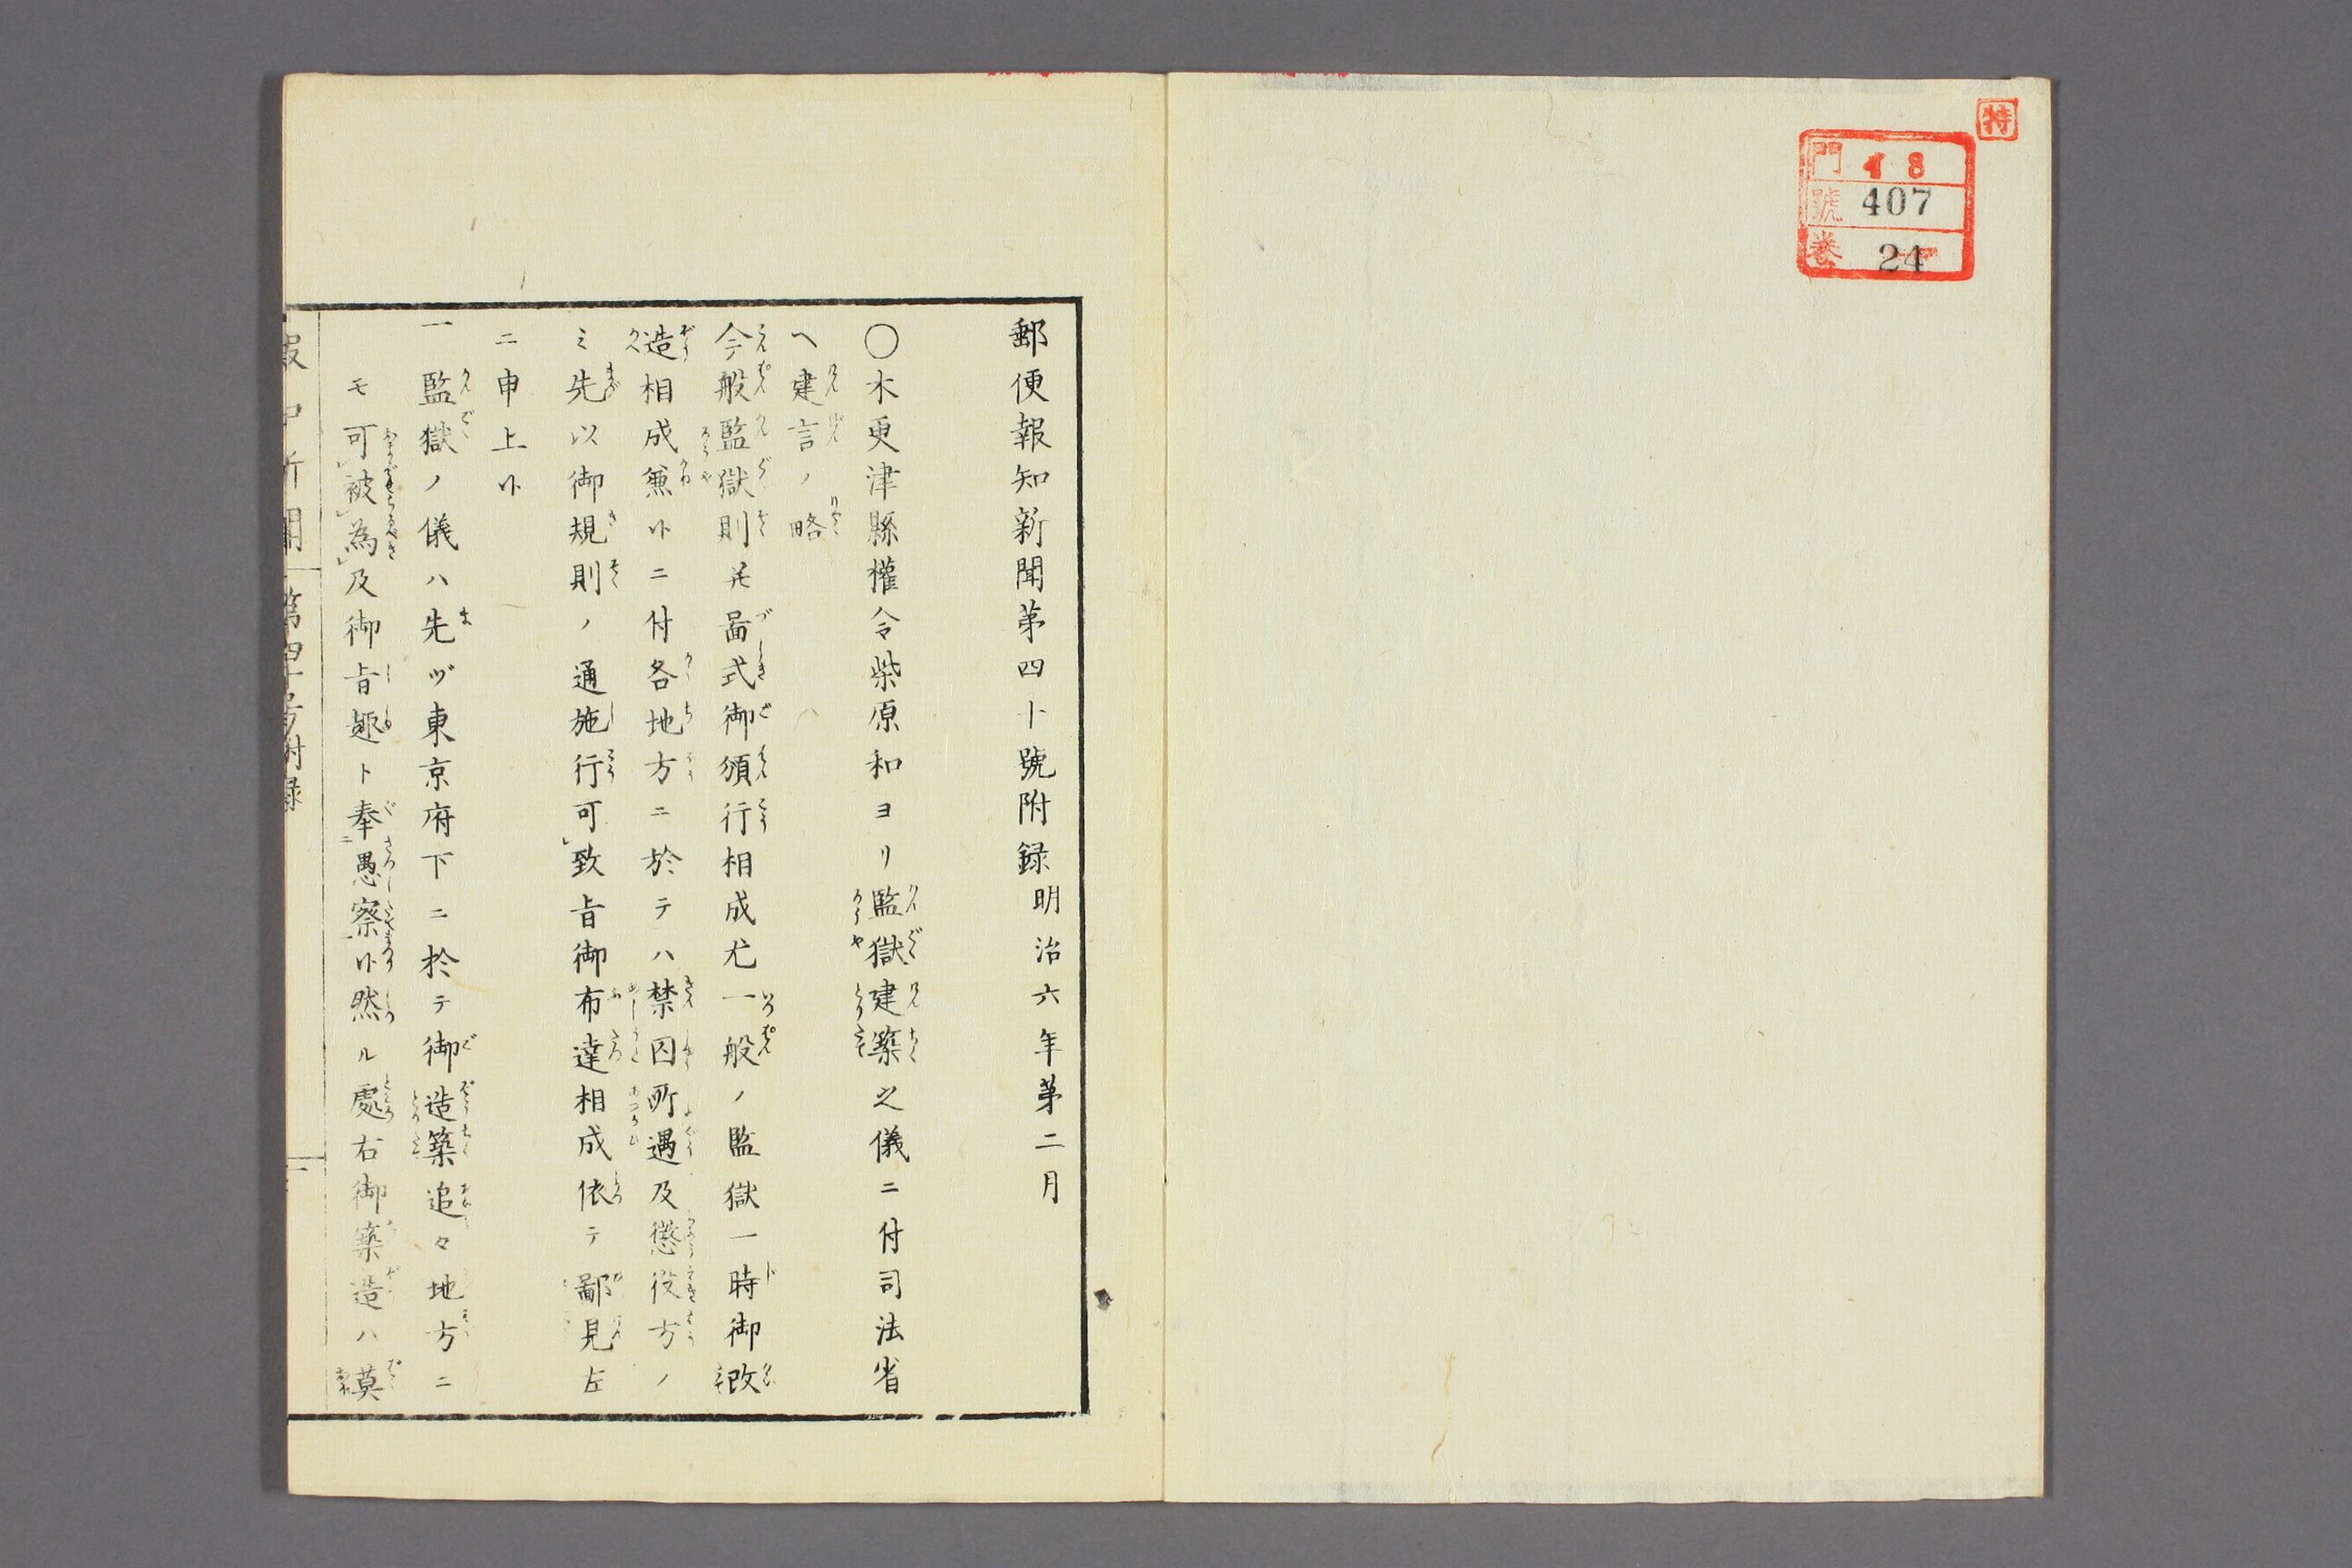 特
門 18
號 407
卷 24
郵便報知新聞第四十號附録 明治六年第二月
〇木更津縣權令柴原和ヨリ監獄建築之儀ニ付司法省
ヘ建言ノ略
今般監獄則并啚式御頒行相成尤一般ノ監獄一時御改
造相成兼候ニ付各地方ニ於テハ禁囚所遇及懲役方ノ
ミ先以御規則ノ通施行可致旨御布達相成依テ鄙見左
ニ申上候
一監獄ノ儀ハ先ヅ東京府下ニ於テ御造築追々地方ニ
モ可被為及御旨趣ト奉愚察候然ル處右御築造ハ莫
第四十号附録